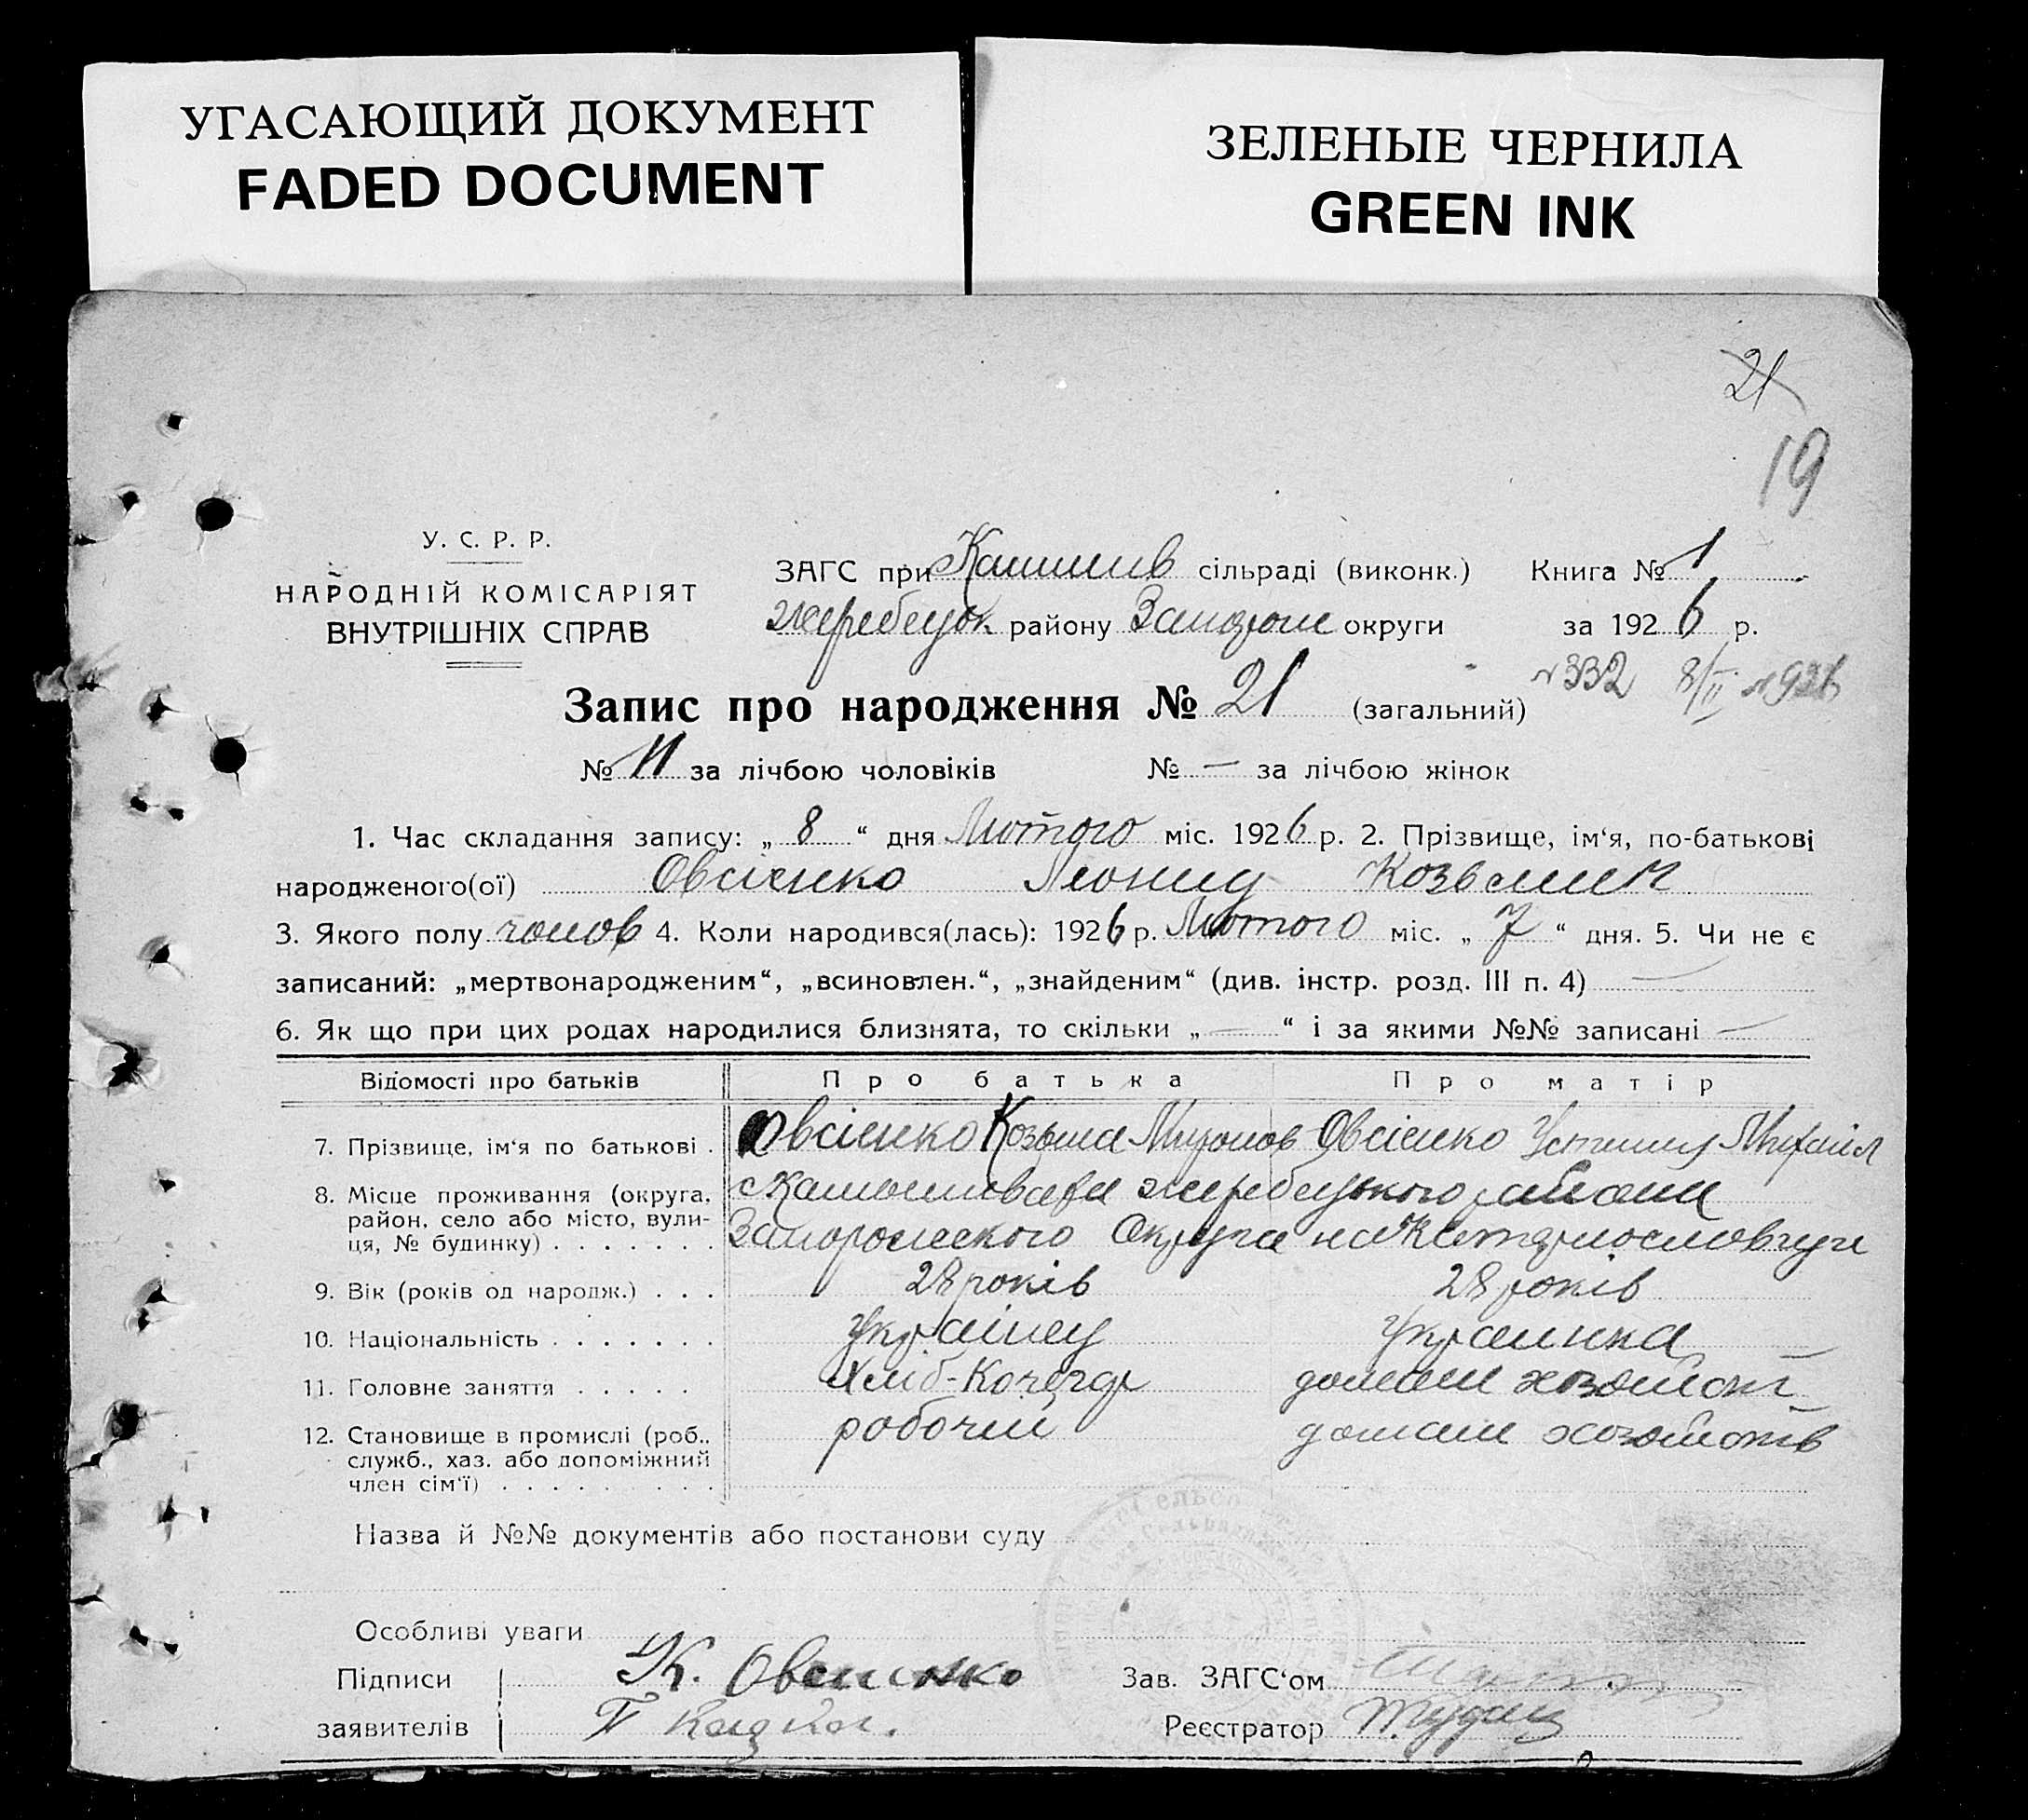 УГАСАЮЩИЙ ДОКУМЕНТ
FADED DOCUMENT
ЗЕЛЕНЫЕ ЧЕРНИЛА
GREEN INK
21
19
У. С. Р. Р.
НАРОДНІЙ КОМІСАРІЯТ
ВНУТРІШНІХ СПРАВ
ЗАГС при сільраді (виконк.) Книга № 1
жеребецьк району округи за 1926 р.
№332 8/II 1926
Запис про народження № 21 (загальний)
№ 11 за лічбою чоловіків № — за лічбою жінок
1. Час складання запису: „ 8 “ дня Лютого міс. 1926 р. 2. Прізвище, ім‘я, по-батькові
народженого(ої) Овсієнко Леонид
3. Якого полу чолов 4. Коли народився(лась): 1926 р. Лютого міс. „ 7 “ дня. 5. Чи не є
записаний: „мертвонародженим“, „всиновлен.“, „знайденим“ (див. інстр. розд. III п. 4) —
6. Як що при цих родах народилися близнята, то скільки „ — “ і за якими №№ записані —
Відомості про батьків Про батька Про матір
7. Прізвище, ім‘я по батькові . Овсієнко Козьма Миронов Овсієнко Михайл
8. Місце проживання (округа, район, село або місто, вули-ця, № будинку) . . . . . . .
жеребецького района
Запорожского Округа на
9. Вік (років од народж.) . . . 28 років 28 років
10. Національність . . . . . . . Українец Украинка
11. Головне заняття . . . . . домаш хозяйст
12. Становище в промислі (роб., служб., хаз. або допоміжний член сім‘ї) . . . . . . . . . робочий домаш хозяйств
Назва й №№ документів або постанови суду
Особливі уваги
Підписи К. Овсиенко Зав. ЗАГС‘ом
заявителів Реєстратор